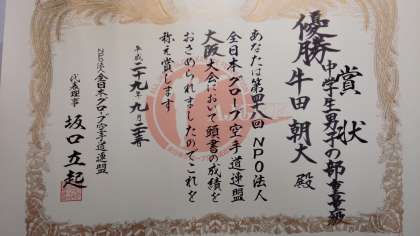 賞状
中学生男子の部
優勝 牛田 朝大 殿
あなたは第四八回NPO法人
全日本グローブ空手道連盟
大阪大会において頭書の成績を
おさめられましたのでこれを
称え賞します
平成二十九年九月
NPO法人全日本グローブ空手道連盟
代表理事 坂口立起